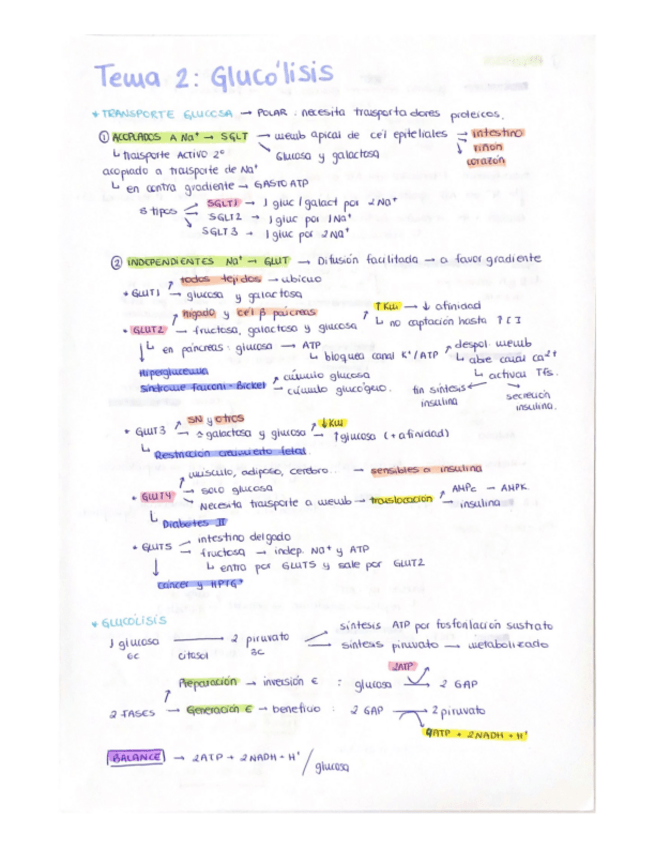 Tema 2: Glucólisis
* TRANSPORTE GLUCOSA → POLAR: necesita transportadores proteicos.
① ACOPLADOS A Na⁺ → SGLT → memb apical de cel epiteliales → intestino
riñon
corazón
Glucosa y galactosa
↳ transporte ACTIVO 2º
acoplado a trasporte de Na⁺
↳ en contra gradiente → GASTO ATP
3 tipos
SGLT1 → 1 gluc / galact por 2Na⁺
SGLT2 → 1 gluc por 1Na⁺
SGLT3 → 1 gluc por 2Na⁺
② INDEPENDIENTES Na⁺ → GLUT → Difusión facilitada → a favor gradiente
• GLUT1 ↗ todos tejidos → ubicuo
→ glucosa y galactosa
• GLUT2 ↗ higado y cel β páncreas
→ fructosa, galactosa y glucosa
↗ ↑Km → ↓ afinidad
↳ no captación hasta ↑[ ]
↳ en páncreas: glucosa → ATP
↳ bloquea canal K⁺/ATP
↗ despol. memb
↳ abre canal Ca²⁺
↳ activa Tfs.
fin síntesis insulina
secreción insulina.
↓ Hiperglucemia
Síndrome Fanconi-Bickel
↗ cúmulo glucosa
→ cúmulo glucógeno.
• GLUT3 ↗ SN y otros
→ galactosa y glucosa
↗ ↓Km
→ ↑glucosa (+ afinidad)
↳ Restricción crecimiento fetal.
• GLUT4 ↗ músculo, adiposo, cerebro.. → sensibles a insulina
→ solo glucosa
↘ Necesita transporte a memb → translocación
↗ AMPc → AMPK.
→ insulina
↳ Diabetes II
• GLUT5 ↗ intestino delgado
→ fructosa → indep. Na⁺ y ATP
↳ entra por GLUT5 y sale por GLUT2
↓
cáncer y HPTG
* GLUCÓLISIS
1 glucosa → 2 piruvato
6C citosol 3C
síntesis ATP por fosforilación sustrato
síntesis piruvato → metabolizado
2 FASES
↗ Preparación → inversión € : glucosa → 2 GAP
2ATP
→ Generación € → beneficio : 2 GAP → 2 piruvato
4ATP + 2NADH + H⁺
BALANCE → 2ATP + 2NADH + H⁺ / glucosa